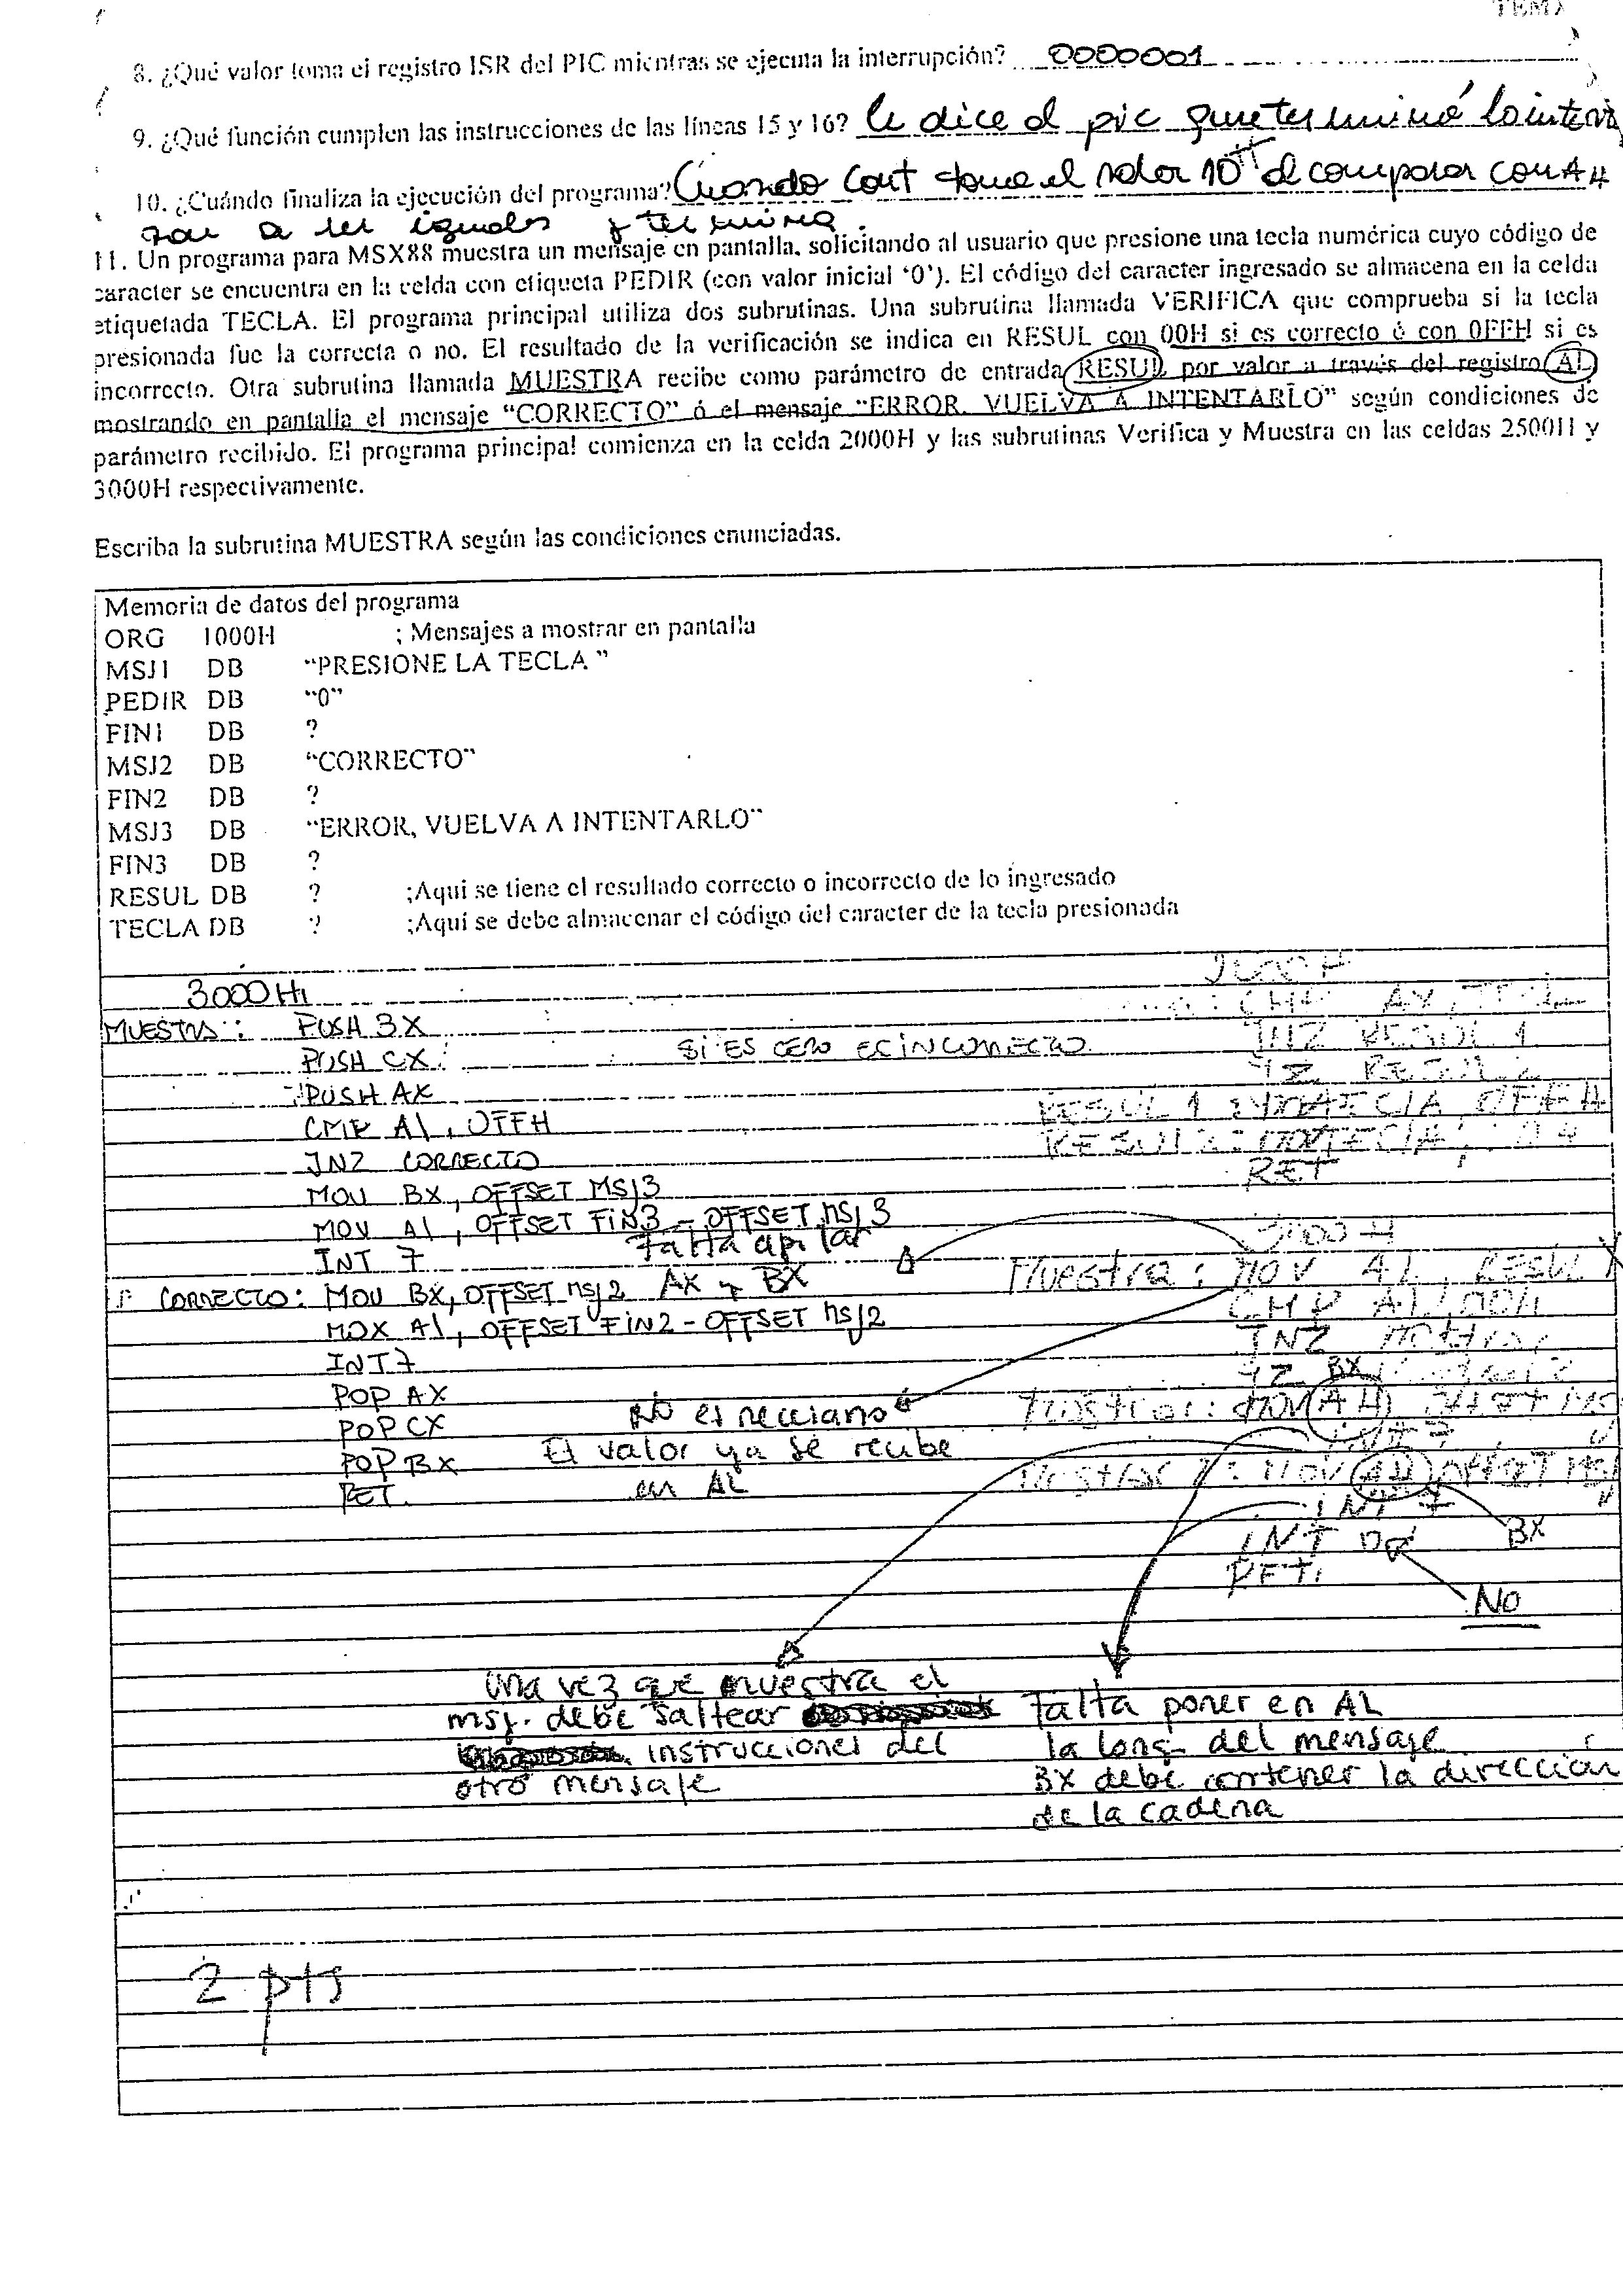 8. ¿Qué valor toma el registro ISR del PIC mientras se ejecuta la interrupción? 0000001
9. ¿Qué función cumplen las instrucciones de las líneas 15 y 16? le dice al pic que terminó la interr
10. ¿Cuándo finaliza la ejecución del programa? Cuando Cont tome el valor 10H al comparar con AH
van a ser iguales y termina.
11. Un programa para MSX88 muestra un mensaje en pantalla, solicitando al usuario que presione una tecla numérica cuyo código de
caracter se encuentra en la celda con etiqueta PEDIR (con valor inicial ‘0’). El código del caracter ingresado se almacena en la celda
etiquetada TECLA. El programa principal utiliza dos subrutinas. Una subrutina llamada VERIFICA que comprueba si la tecla
presionada fue la correcta o no. El resultado de la verificación se indica en RESUL con 00H si es correcto ó con 0FFH si es
incorrecto. Otra subrutina llamada MUESTRA recibe como parámetro de entrada RESUL por valor a través del registro AL
mostrando en pantalla el mensaje “CORRECTO” ó el mensaje “ERROR, VUELVA A INTENTARLO” según condiciones de
parámetro recibido. El programa principal comienza en la celda 2000H y las subrutinas Verifica y Muestra en las celdas 2500H y
3000H respectivamente.
Escriba la subrutina MUESTRA según las condiciones enunciadas.
Memoria de datos del programa
ORG 1000H ; Mensajes a mostrar en pantalla
MSJ1 DB “PRESIONE LA TECLA ”
PEDIR DB “0”
FIN1 DB ?
MSJ2 DB “CORRECTO”
FIN2 DB ?
MSJ3 DB “ERROR, VUELVA A INTENTARLO”
FIN3 DB ?
RESUL DB ? ;Aquí se tiene el resultado correcto o incorrecto de lo ingresado
TECLA DB ? ;Aquí se debe almacenar el código del caracter de la tecla presionada
3000H
MUESTRA: PUSH BX
PUSH CX SI ES CERO ES INCORRECTO
PUSH AX
CMP Al, 0FFH
JNZ CORRECTO
MOV BX, OFFSET MSJ3
MOV Al, OFFSET FIN3 - OFFSET MSJ3
INT 7
CORRECTO: MOV BX, OFFSET MSJ2
MOX Al, OFFSET FIN2 - OFFSET MSJ2
INT 7
POP AX
POP CX
POP BX
RET
CMP AX,
JNZ RESUL 1
JZ RESUL 2
RESUL 1: 0FFH
RESUL 2:
RET
Falta apilar
AX y BX
3000H
Muestra: MOV AL, RESUL X
CMP AL, 00H
JNZ
JZ BX
MOV AH, OFFSET
INT 7
MOV AH, OFFSET
INT 7
INT 0
RET
BX
NO
No es necesario
El valor ya se recibe
en AL
Una vez que muestra el
msj. debe saltear
instrucciones del
otro mensaje
Falta poner en AL
la long. del mensaje
BX debe contener la dirección
de la cadena
2 pts